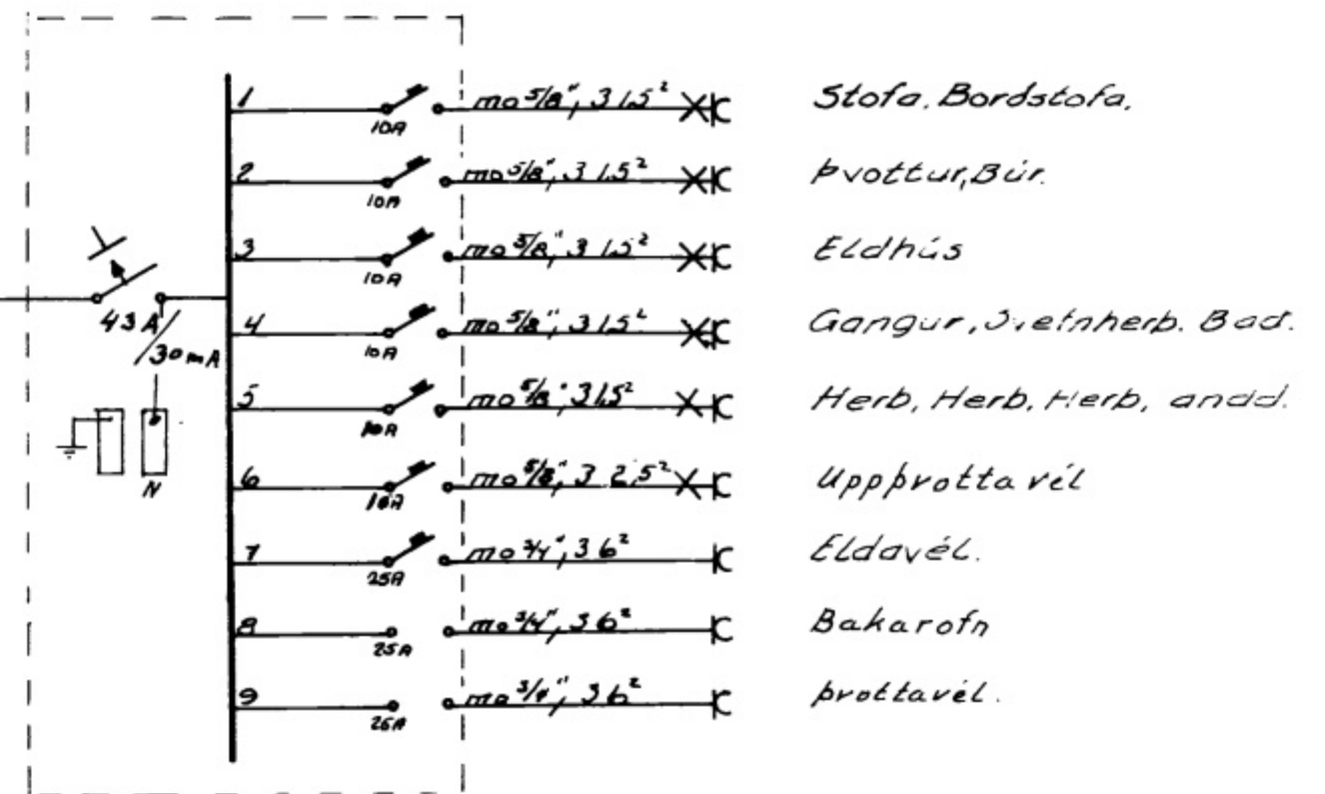 1 10A mo 5/8", 3 1.5² Stofa, Bordstofa,
2 10A mo 5/8", 3 1.5² Þvottur, Búr.
3 10A mo 5/8", 3 1.5² Eldhús
43A/30mA
4 10A mo 5/8", 3 1.5² Gangur, Svefnherb. Bad.
5 10A mo 5/8" 3 1.5² Herb, Herb, Herb, andd.
N
6 16A mo 5/8", 3 2,5² Uppþvottavél
7 25A mo 3/4", 3 6² Eldavél.
8 25A mo 3/4", 3 6² Bakarofn
9 25A mo 3/4", 3 6² Þvottavél.